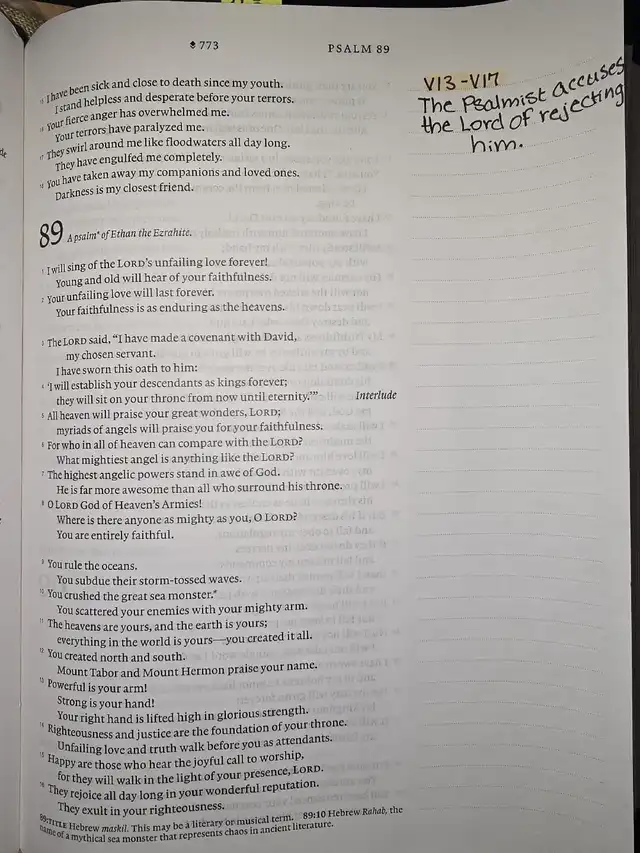 773
PSALM 89
15 I have been sick and close to death since my youth.
I stand helpless and desperate before your terrors.
16 Your fierce anger has overwhelmed me.
Your terrors have paralyzed me.
17 They swirl around me like floodwaters all day long.
They have engulfed me completely.
18 You have taken away my companions and loved ones.
Darkness is my closest friend.
89 A psalm* of Ethan the Ezrahite.
1 I will sing of the LORD's unfailing love forever!
Young and old will hear of your faithfulness.
2 Your unfailing love will last forever.
Your faithfulness is as enduring as the heavens.
3 The LORD said, “I have made a covenant with David,
my chosen servant.
I have sworn this oath to him:
4 ‘I will establish your descendants as kings forever;
they will sit on your throne from now until eternity.’” Interlude
5 All heaven will praise your great wonders, LORD;
myriads of angels will praise you for your faithfulness.
6 For who in all of heaven can compare with the LORD?
What mightiest angel is anything like the LORD?
7 The highest angelic powers stand in awe of God.
He is far more awesome than all who surround his throne.
8 O LORD God of Heaven's Armies!
Where is there anyone as mighty as you, O LORD?
You are entirely faithful.
9 You rule the oceans.
You subdue their storm-tossed waves.
10 You crushed the great sea monster.*
You scattered your enemies with your mighty arm.
11 The heavens are yours, and the earth is yours;
everything in the world is yours—you created it all.
12 You created north and south.
Mount Tabor and Mount Hermon praise your name.
13 Powerful is your arm!
Strong is your hand!
Your right hand is lifted high in glorious strength.
14 Righteousness and justice are the foundation of your throne.
Unfailing love and truth walk before you as attendants.
15 Happy are those who hear the joyful call to worship,
for they will walk in the light of your presence, LORD.
16 They rejoice all day long in your wonderful reputation.
They exult in your righteousness.
89:TITLE Hebrew maskil. This may be a literary or musical term. 89:10 Hebrew Rahab, the
name of a mythical sea monster that represents chaos in ancient literature.
V13-V17
The Psalmist accuses
the Lord of rejecting
him.